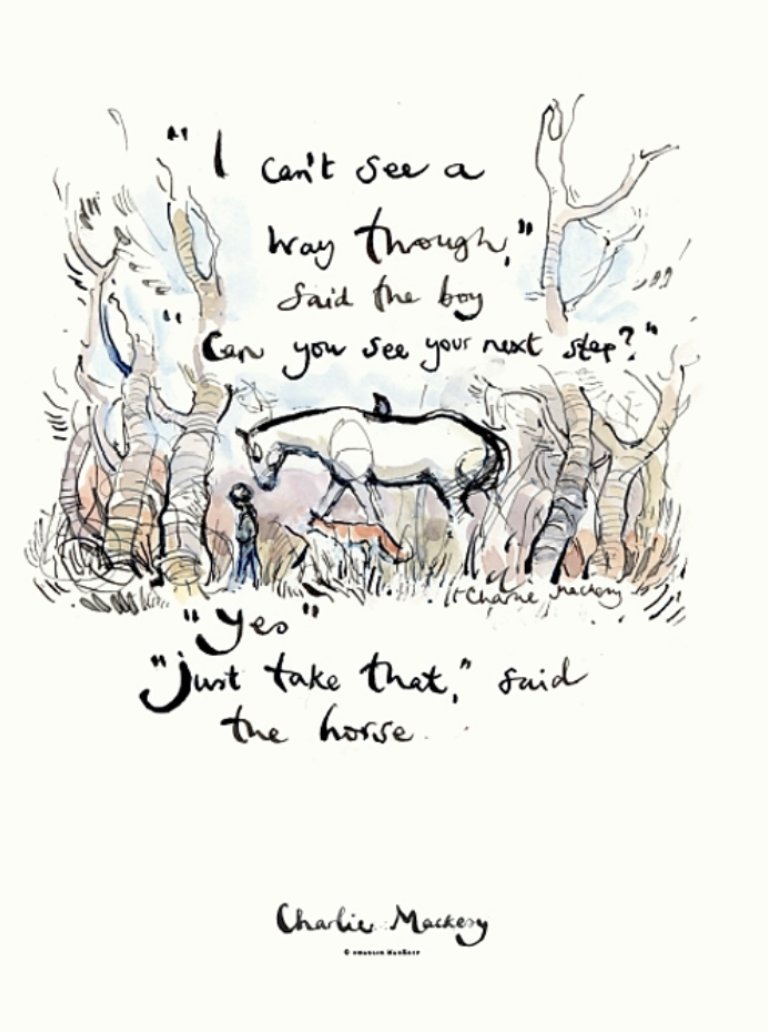 "I can't see a
way through,"
said the boy
"Can you see your next step?"
"Yes"
"Just take that," said
the horse.
Charlie Mackesy
Charlie Mackesy
©